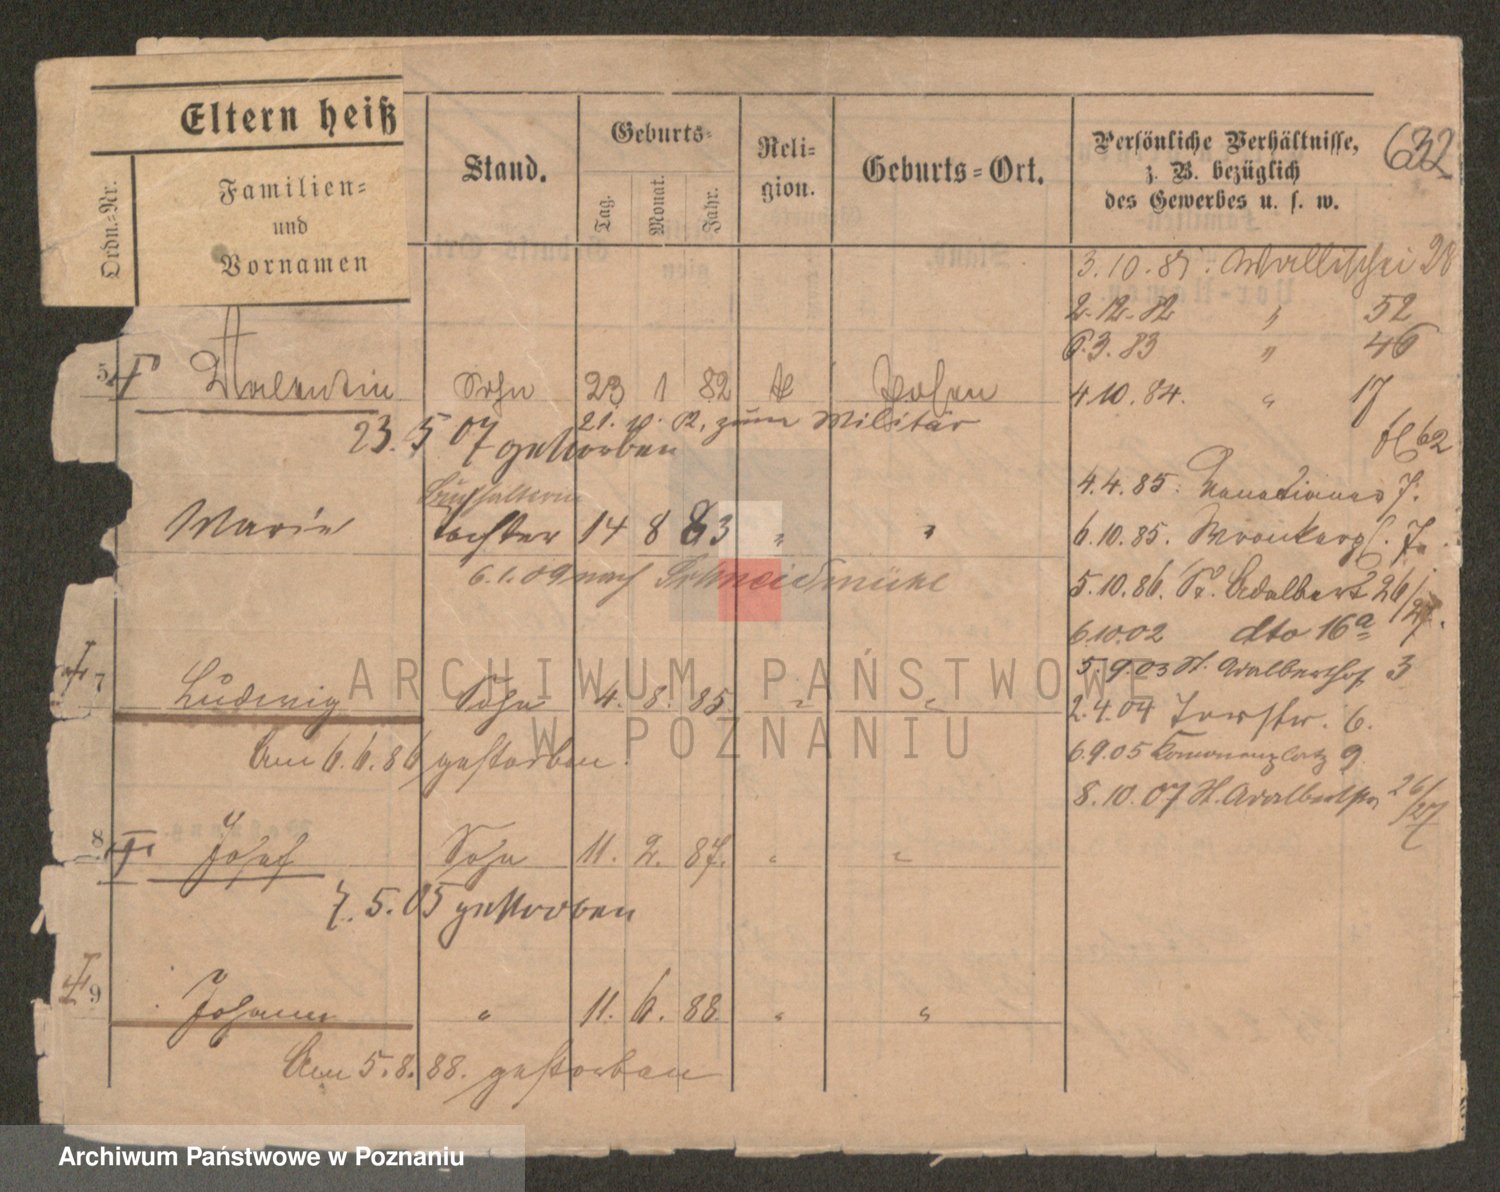 Eltern heiß
Ordn.=Nr.
Familien=
und
Vornamen
Stand.
Geburts=
Tag.
Monat.
Jahr.
Reli=
gion.
Geburts=Ort.
Persönliche Verhältnisse,
z. B. bezüglich
des Gewerbes u. s. w.
632
3.10.81. Wallischei 28
2.12.82 " 52
6.3.83 " 46
4.10.84. " 17
62
4.4.85.
6.10.85. Wronkerg.
5.10.86. St. Adalbert 26/27.
6.10.02 dto 16a
5.9.03 St. Adalberthof 3
2.4.04 6.
6.9.05 9
8.10.07 St. Adalbertstr 26/27
5 Valentin Sohn 23 1 82 k Posen
21. 10. 02, zum Militär
23. 5 07 gestorben
Buchhalterin
Marie Tochter 14 8 83 " "
6.1.09 nach Schneidemühl
7 Ludwig Sohn 4. 8. 85. " "
Am 6.6.86 gestorben.
8 Josef Sohn 11. 2. 87. " "
7.5.05 gestorben
9 Johann " 11. 6. 88. " "
Am 5.8.88. gestorben
ARCHIWUM PAŃSTWOWE
W POZNANIU
Archiwum Państwowe w Poznaniu